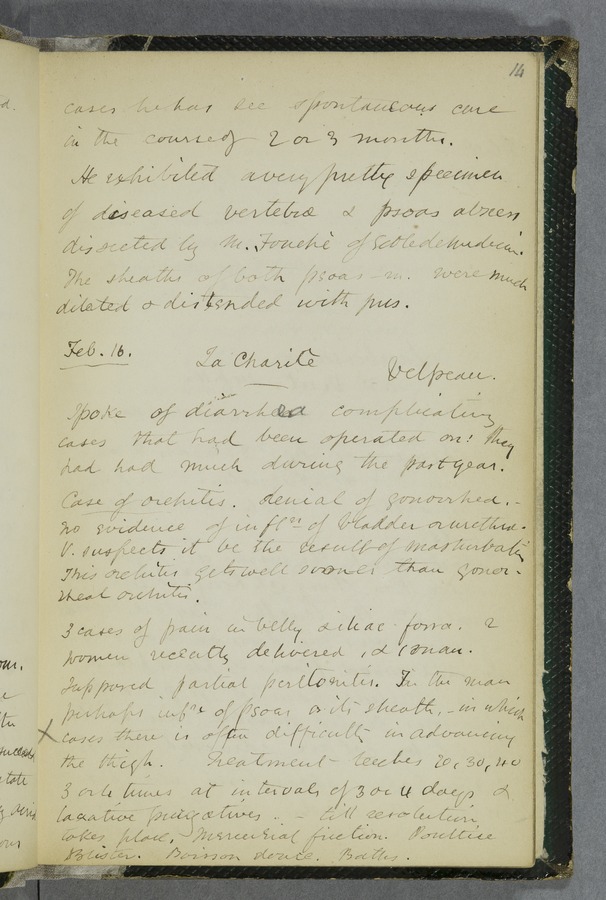 14
cases he has see spontaneous cure
in the course of 2 or 3 months.
He exhibited a very pretty specimen
of diseased vertebræ & psoas abscess
dissected by M. Fouché of
The sheaths of both psoas m. were much
dilated & distended with pus.
Feb. 16. La Charité Velpeau.
Spoke of diarrhea complicating
cases that had been operated on: they
had had much during the past year.
Case of orchitis. denial of gonorrhea. -
no evidence of infln of bladder or urethra.
V. suspects it be the result of masturbatn
This orchitis gets well sooner than gonor-
rheal orchitis.
3 cases of pain in belly & iliac fossa. 2
women recently delivered, & 1 man.
Supposed partial peritonitis. In the man
perhaps infn of psoas or its sheath, - in which
X cases there is often difficulty in advancing
the thigh. Treatment - leeches 20, 30, 40
3 or 4 times at intervals of 3 or 4 days &
laxative purgatives. - till resolution
takes place, - mercurial friction. Poultice
Blister. Boisson douce. Baths.